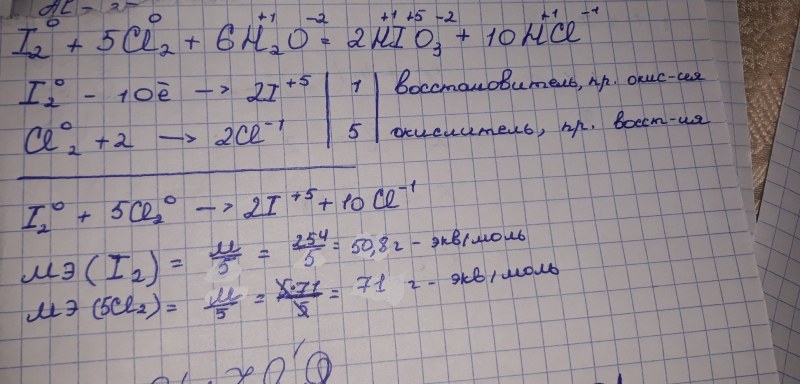 I₂⁰ + 5Cl₂⁰ + 6H₂⁺¹O⁻² = 2H⁺¹I⁺⁵O₃⁻² + 10H⁺¹Cl⁻¹
I₂⁰ - 10ē → 2I⁺⁵ | 1 | восстановитель, пр. окис-ия
Cl₂⁰ + 2 → 2Cl⁻¹ | 5 | окислитель, пр. восст-ия
I₂⁰ + 5Cl₂⁰ → 2I⁺⁵ + 10Cl⁻¹
МЭ (I₂) = М/5 = 254/5 = 50,8 г - экв/моль
МЭ (5Cl₂) = М/5 = 5·71/5 = 71 г - экв/моль